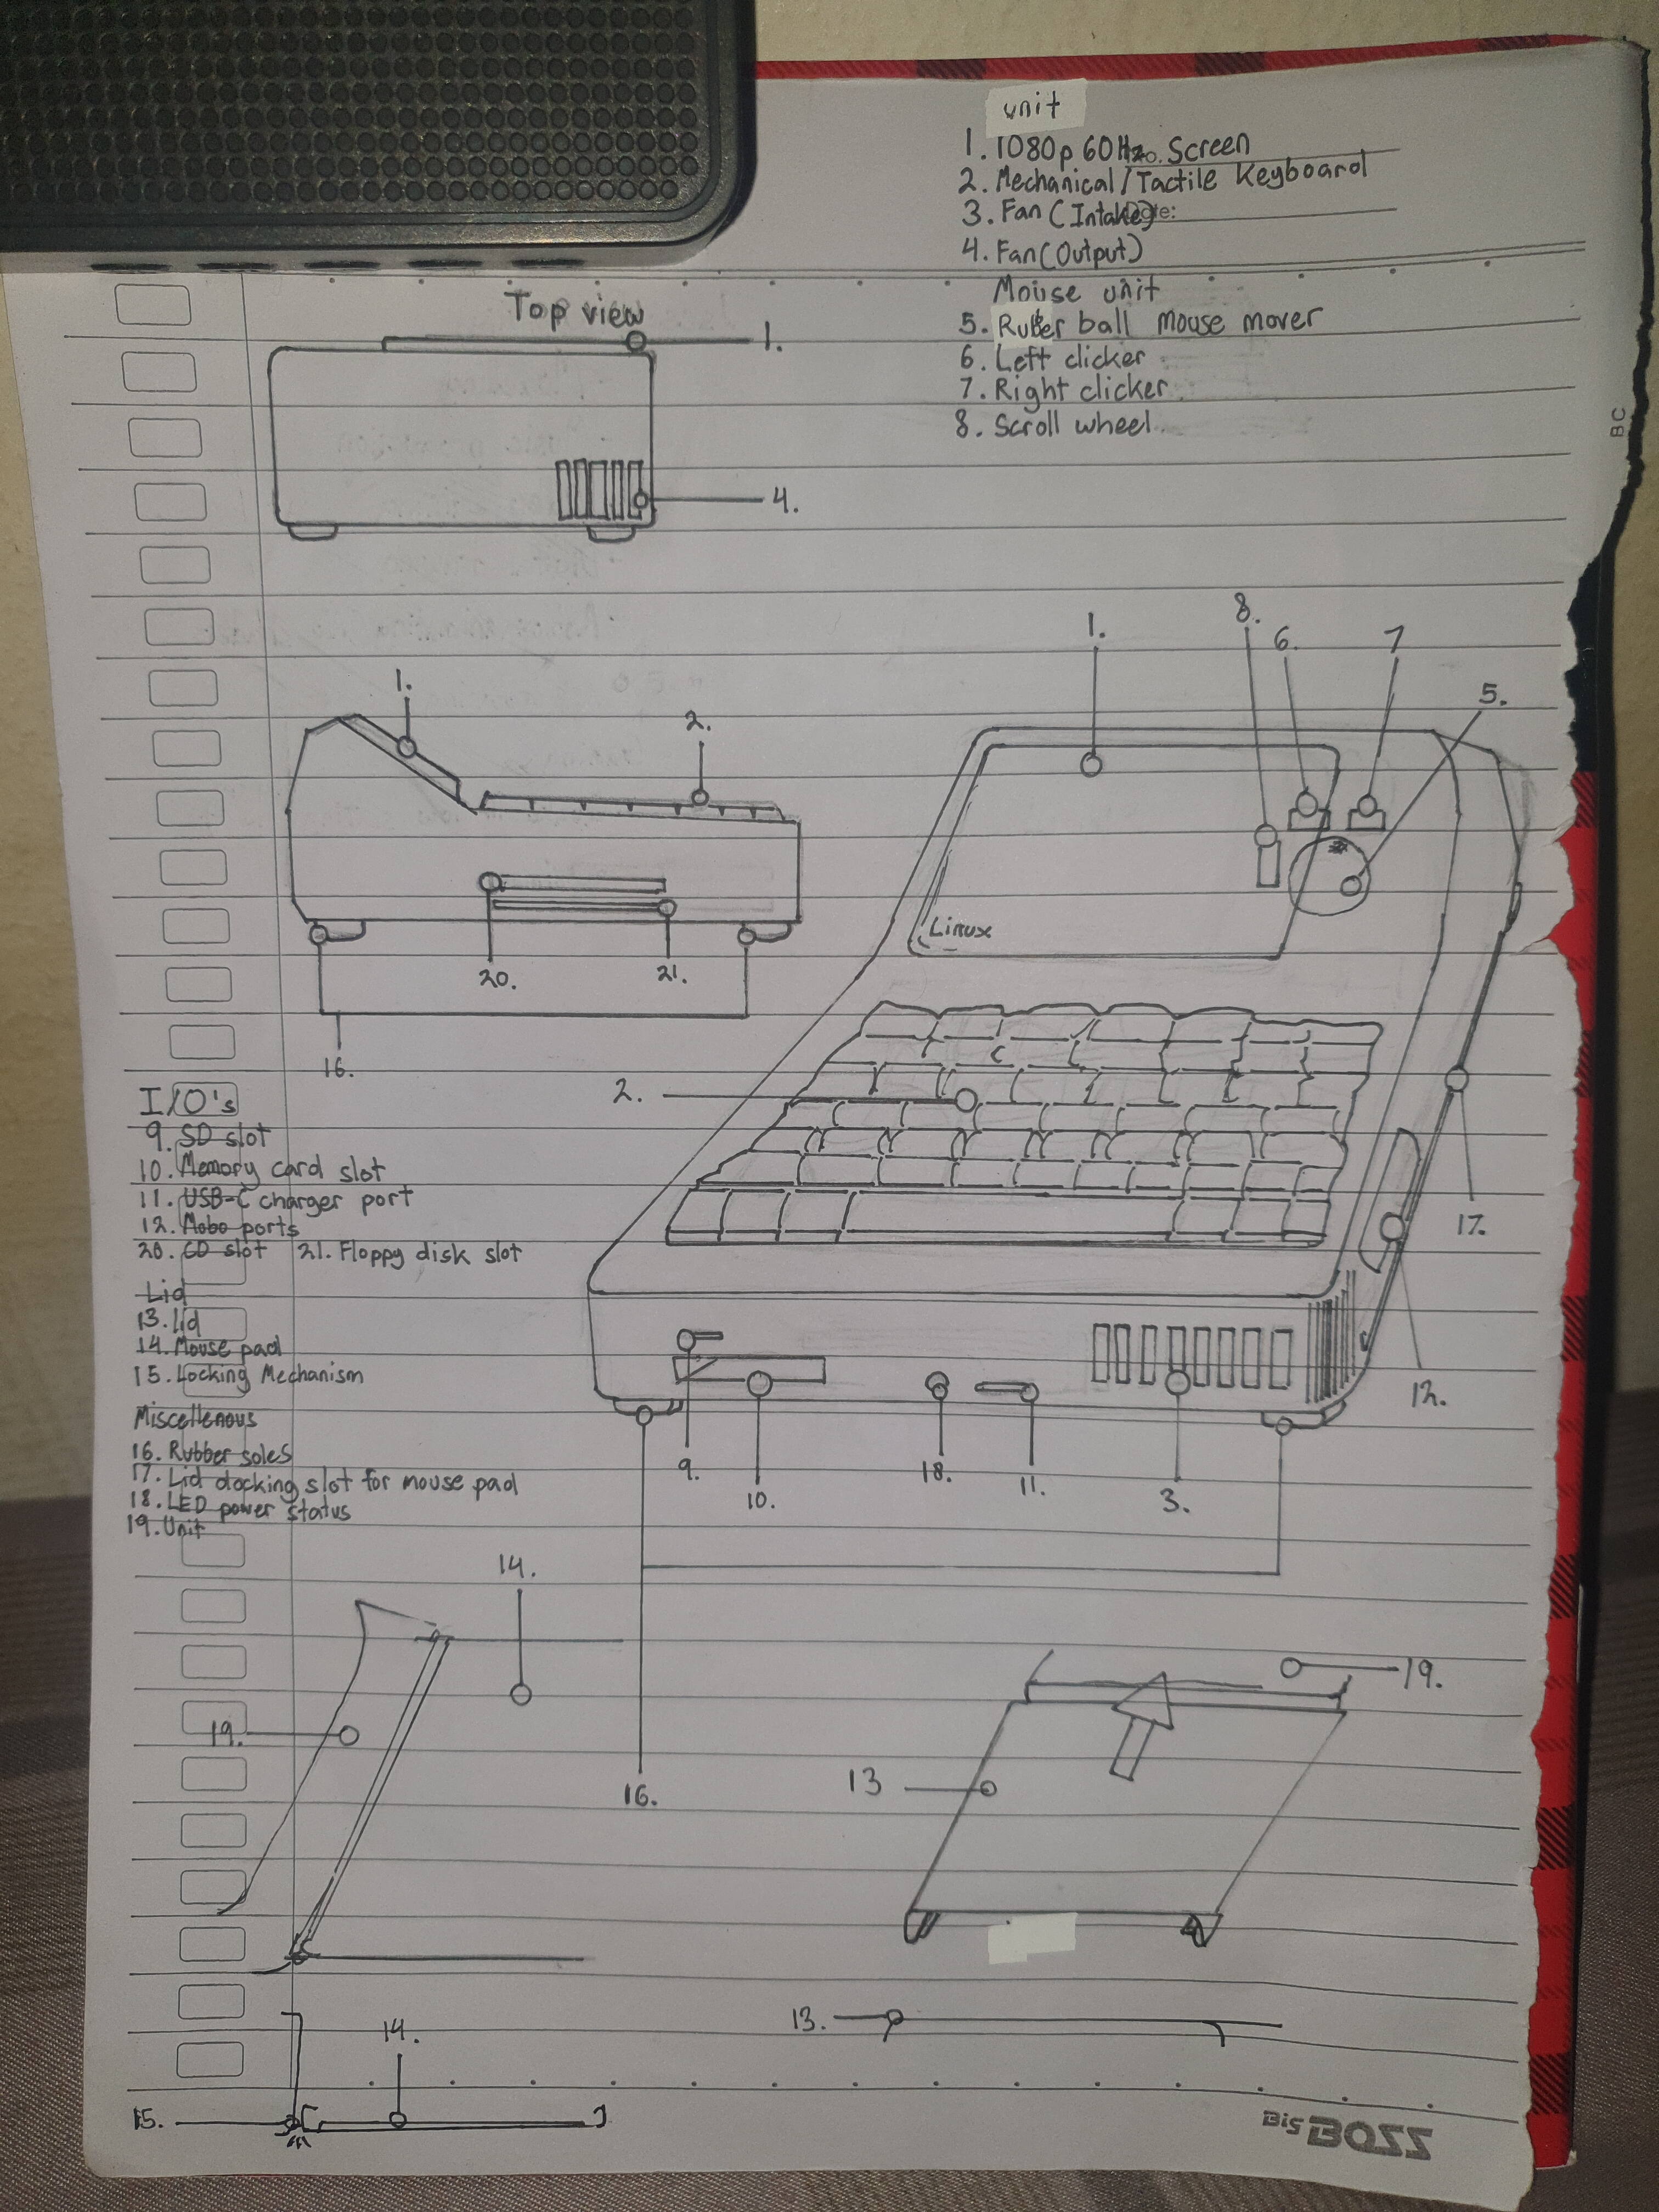 unit
1. 1080p 60Hz. Screen
2. Mechanical/Tactile Keyboard
3. Fan (Intake)
4. Fan (Output)
Mouse unit
5. Rubber ball mouse mover
6. Left clicker
7. Right clicker
8. Scroll wheel
BC
Top view
1.
4.
1.
2.
20.
21.
16.
1.
8.
6.
7
5.
Linux
2.
17.
12.
9.
10.
18.
11.
3.
16.
I/O's
9. SD slot
10. Memory card slot
11. USB-C charger port
12. Mobo ports
20. CD slot 21. Floppy disk slot
Lid
13. Lid
14. Mouse pad
15. Locking Mechanism
Miscellenous
16. Rubber soles
17. Lid docking slot for mouse pad
18. LED power status
19. Unit
14.
19.
19.
13
13.
14.
15.
Big BOSS